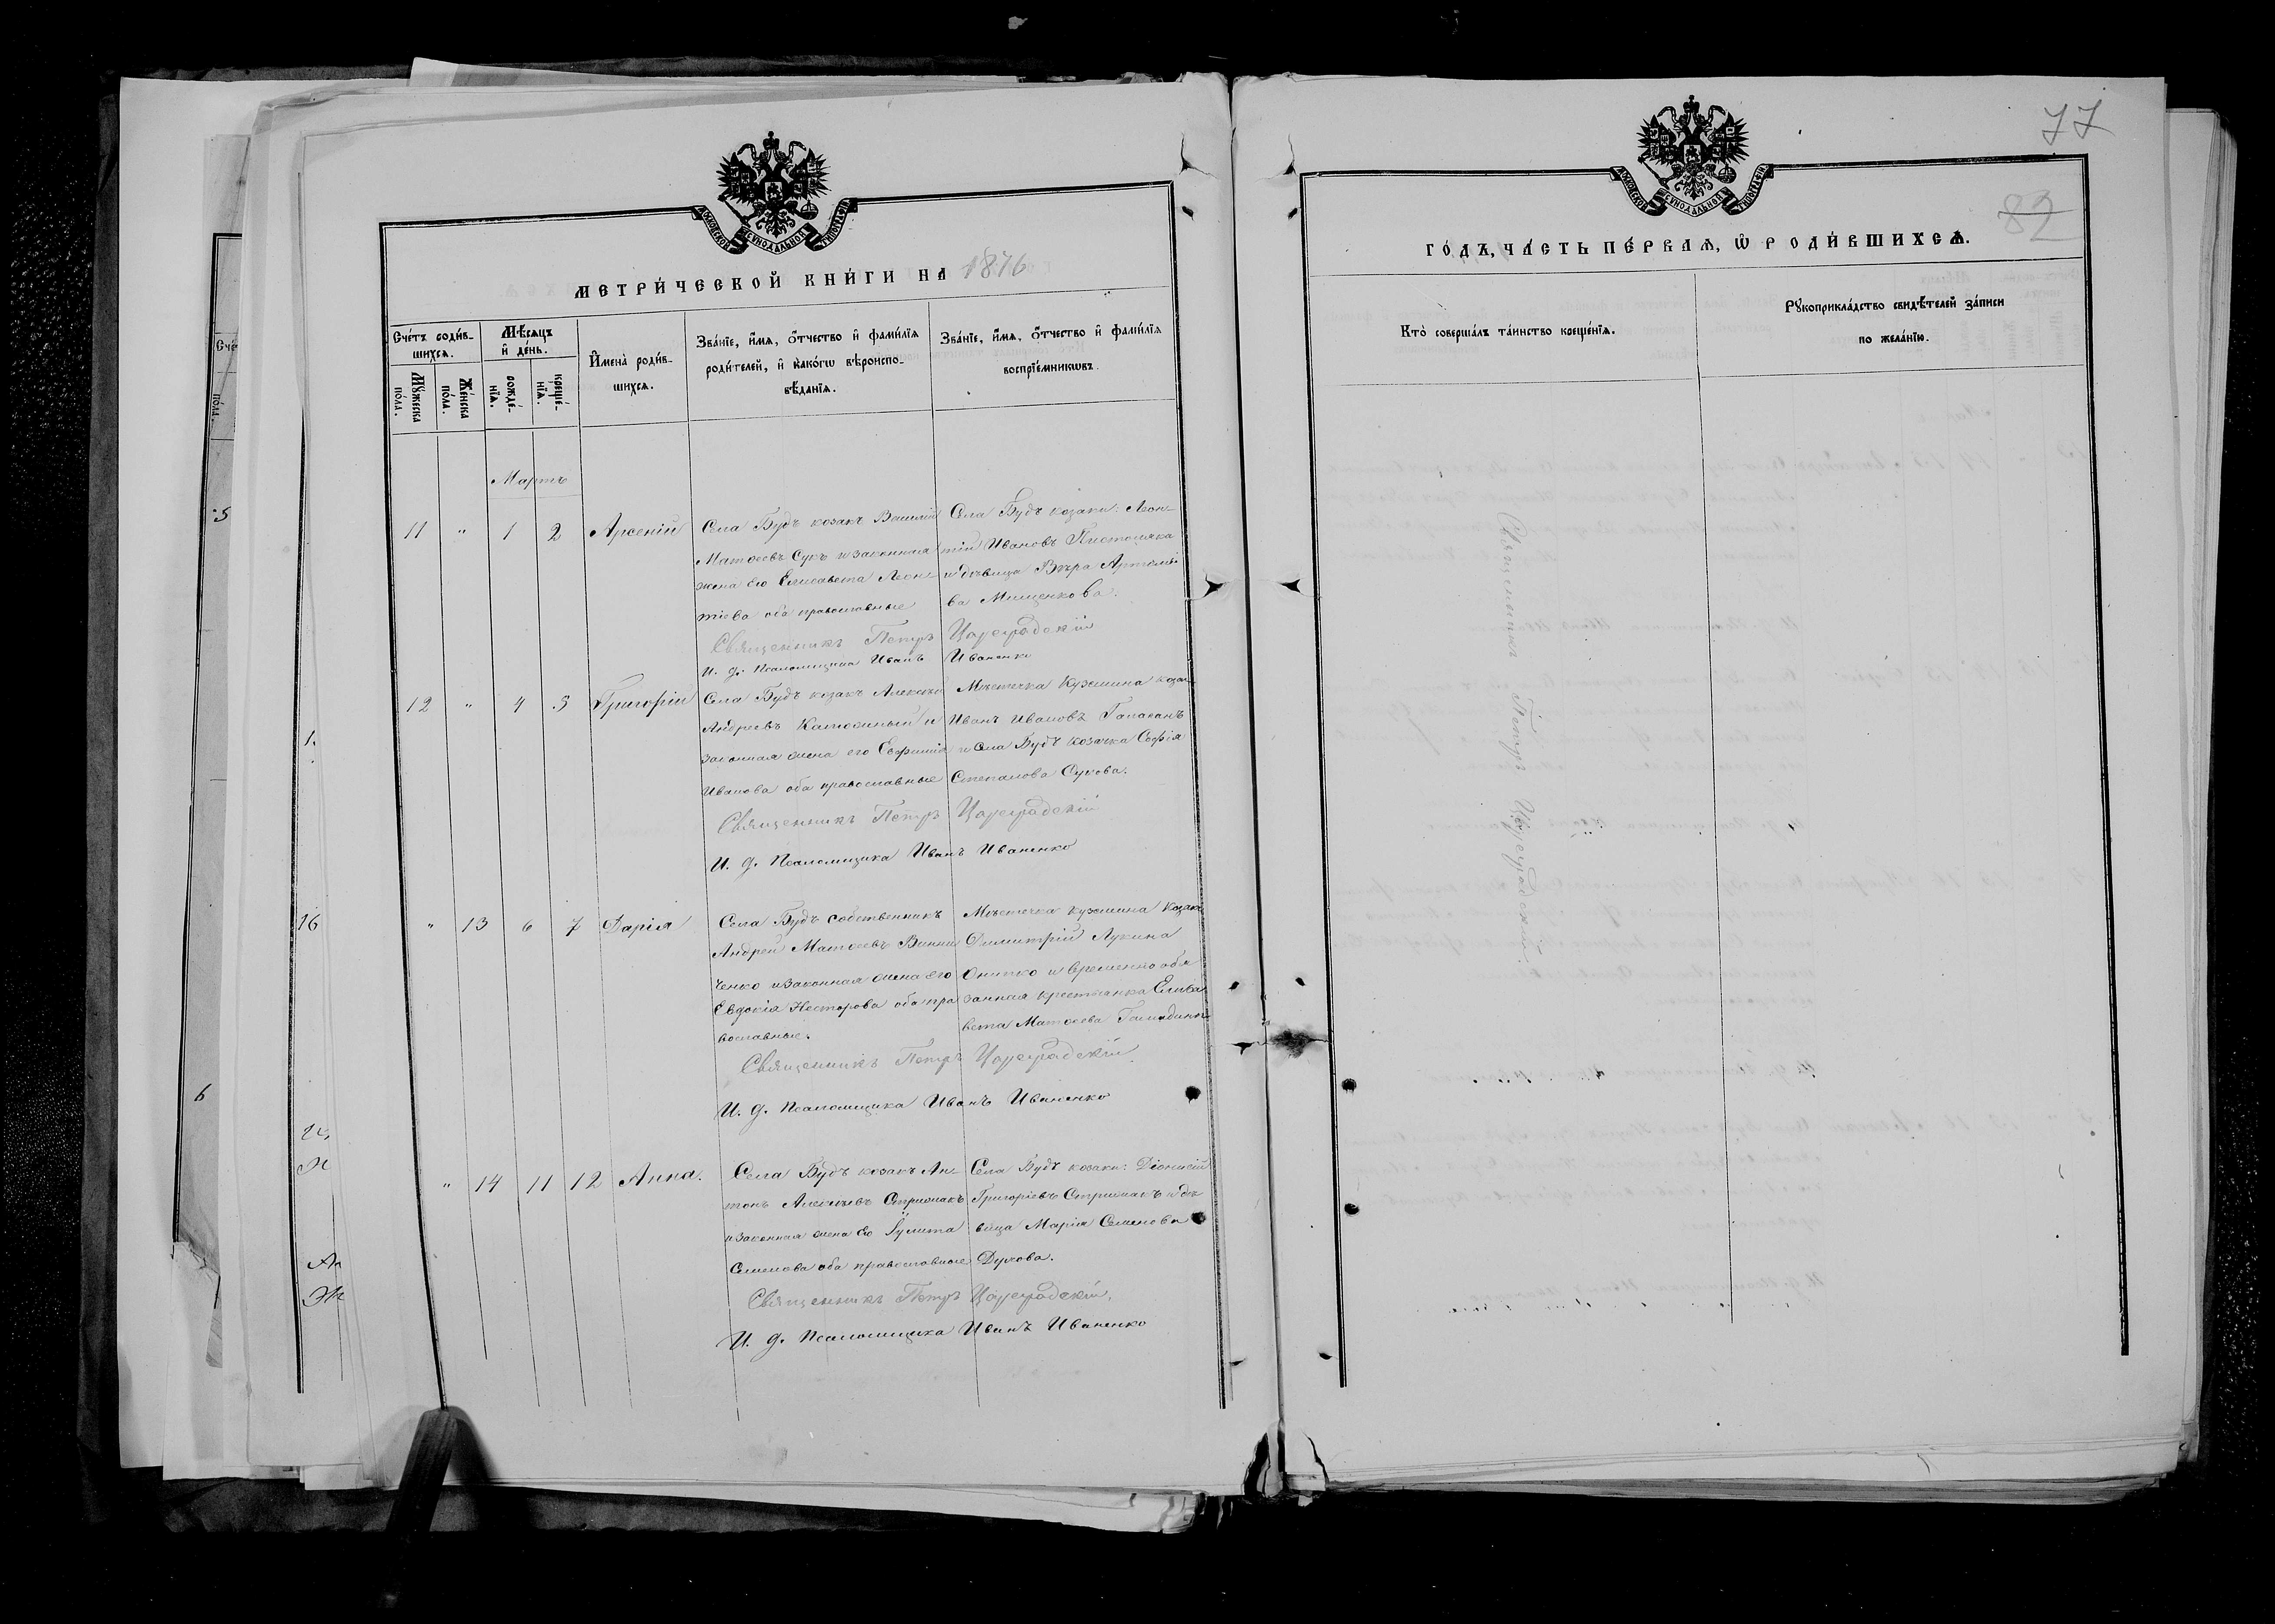 77
82
МЕТРИЧЕСКОЙ КНИГИ НА 1876
ГОДЪ, ЧАСТЬ ПЕРВАЯ, Ѡ РОДИВШИХСЯ.
Счетъ родив-
шихся.
Мужеска пола.
Женска пола.
Мѣсяцъ и день.
рожде-
нїя.
креще-
нїя.
Имена родив-
шихся.
Званїе, имя, отчество и фамилїя
родителей, и какогѡ вѣроиспо-
вѣданїя.
Званїе, имя, отчество и фамилїя
воспрїемникѡвъ.
Кто совершалъ таинство крещенїя.
Рукоприкладство свидѣтелей записи
по желанїю.
Мартъ
11 " 1 2 Арсеній
Села Будъ козакъ Василій
Матѳеевъ Сукъ и законная
жена его Елисавета Леон-
тіева оба православные
Села Будъ козаки: Леон-
тій Ивановъ
и дѣвица Вѣра
ва Мищенкова.
Священникъ Петръ Цареградскій
И. д. Псаломщика Иванъ Иваненко
12 " 4 5 Григорій
Села Будъ козакъ Алексѣй
Андреевъ и
законная жена его Евфимія
Иванова оба православные
Мѣстечка Куземина козакъ
Иванъ Ивановъ
и села Будъ козачка Софія
Степанова Сукова.
Священникъ Петръ Цареградскій
И. д. Псаломщика Иванъ Иваненко
" 13 6 7 Дарія
Села Будъ собственникъ
Андрей Матѳеевъ Винни
ченко и законная жена его
Евдокія Несторова оба пра
вославные.
Мѣстечка Куземина козакъ
Димитрій Лукина
Онипко и временно обя
занная крестьянка Елиса
вета Матѳеева
Священникъ Петръ Цареградскій
И. д. Псаломщика Иванъ Иваненко
" 14 11 12 Анна.
Села Будъ козакъ Ан-
тонъ Алексѣевъ Стрижакъ
и законная жена его
Семенова оба православные
Села Будъ козаки: Діонисій
Григоріевъ Стрижакъ и дѣ
вица Марія Семенова
Духова.
Священникъ Петръ Цареградскій.
И. д. Псаломщика Иванъ Иваненко
Священникъ Петръ Цареградскій.